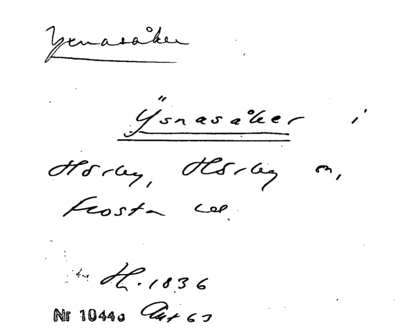 Ysnasåker
Ysnasåker i
Hörby, Hörby sn,
Frosta hd.
H. 1836
Nr 1044 Akt 63